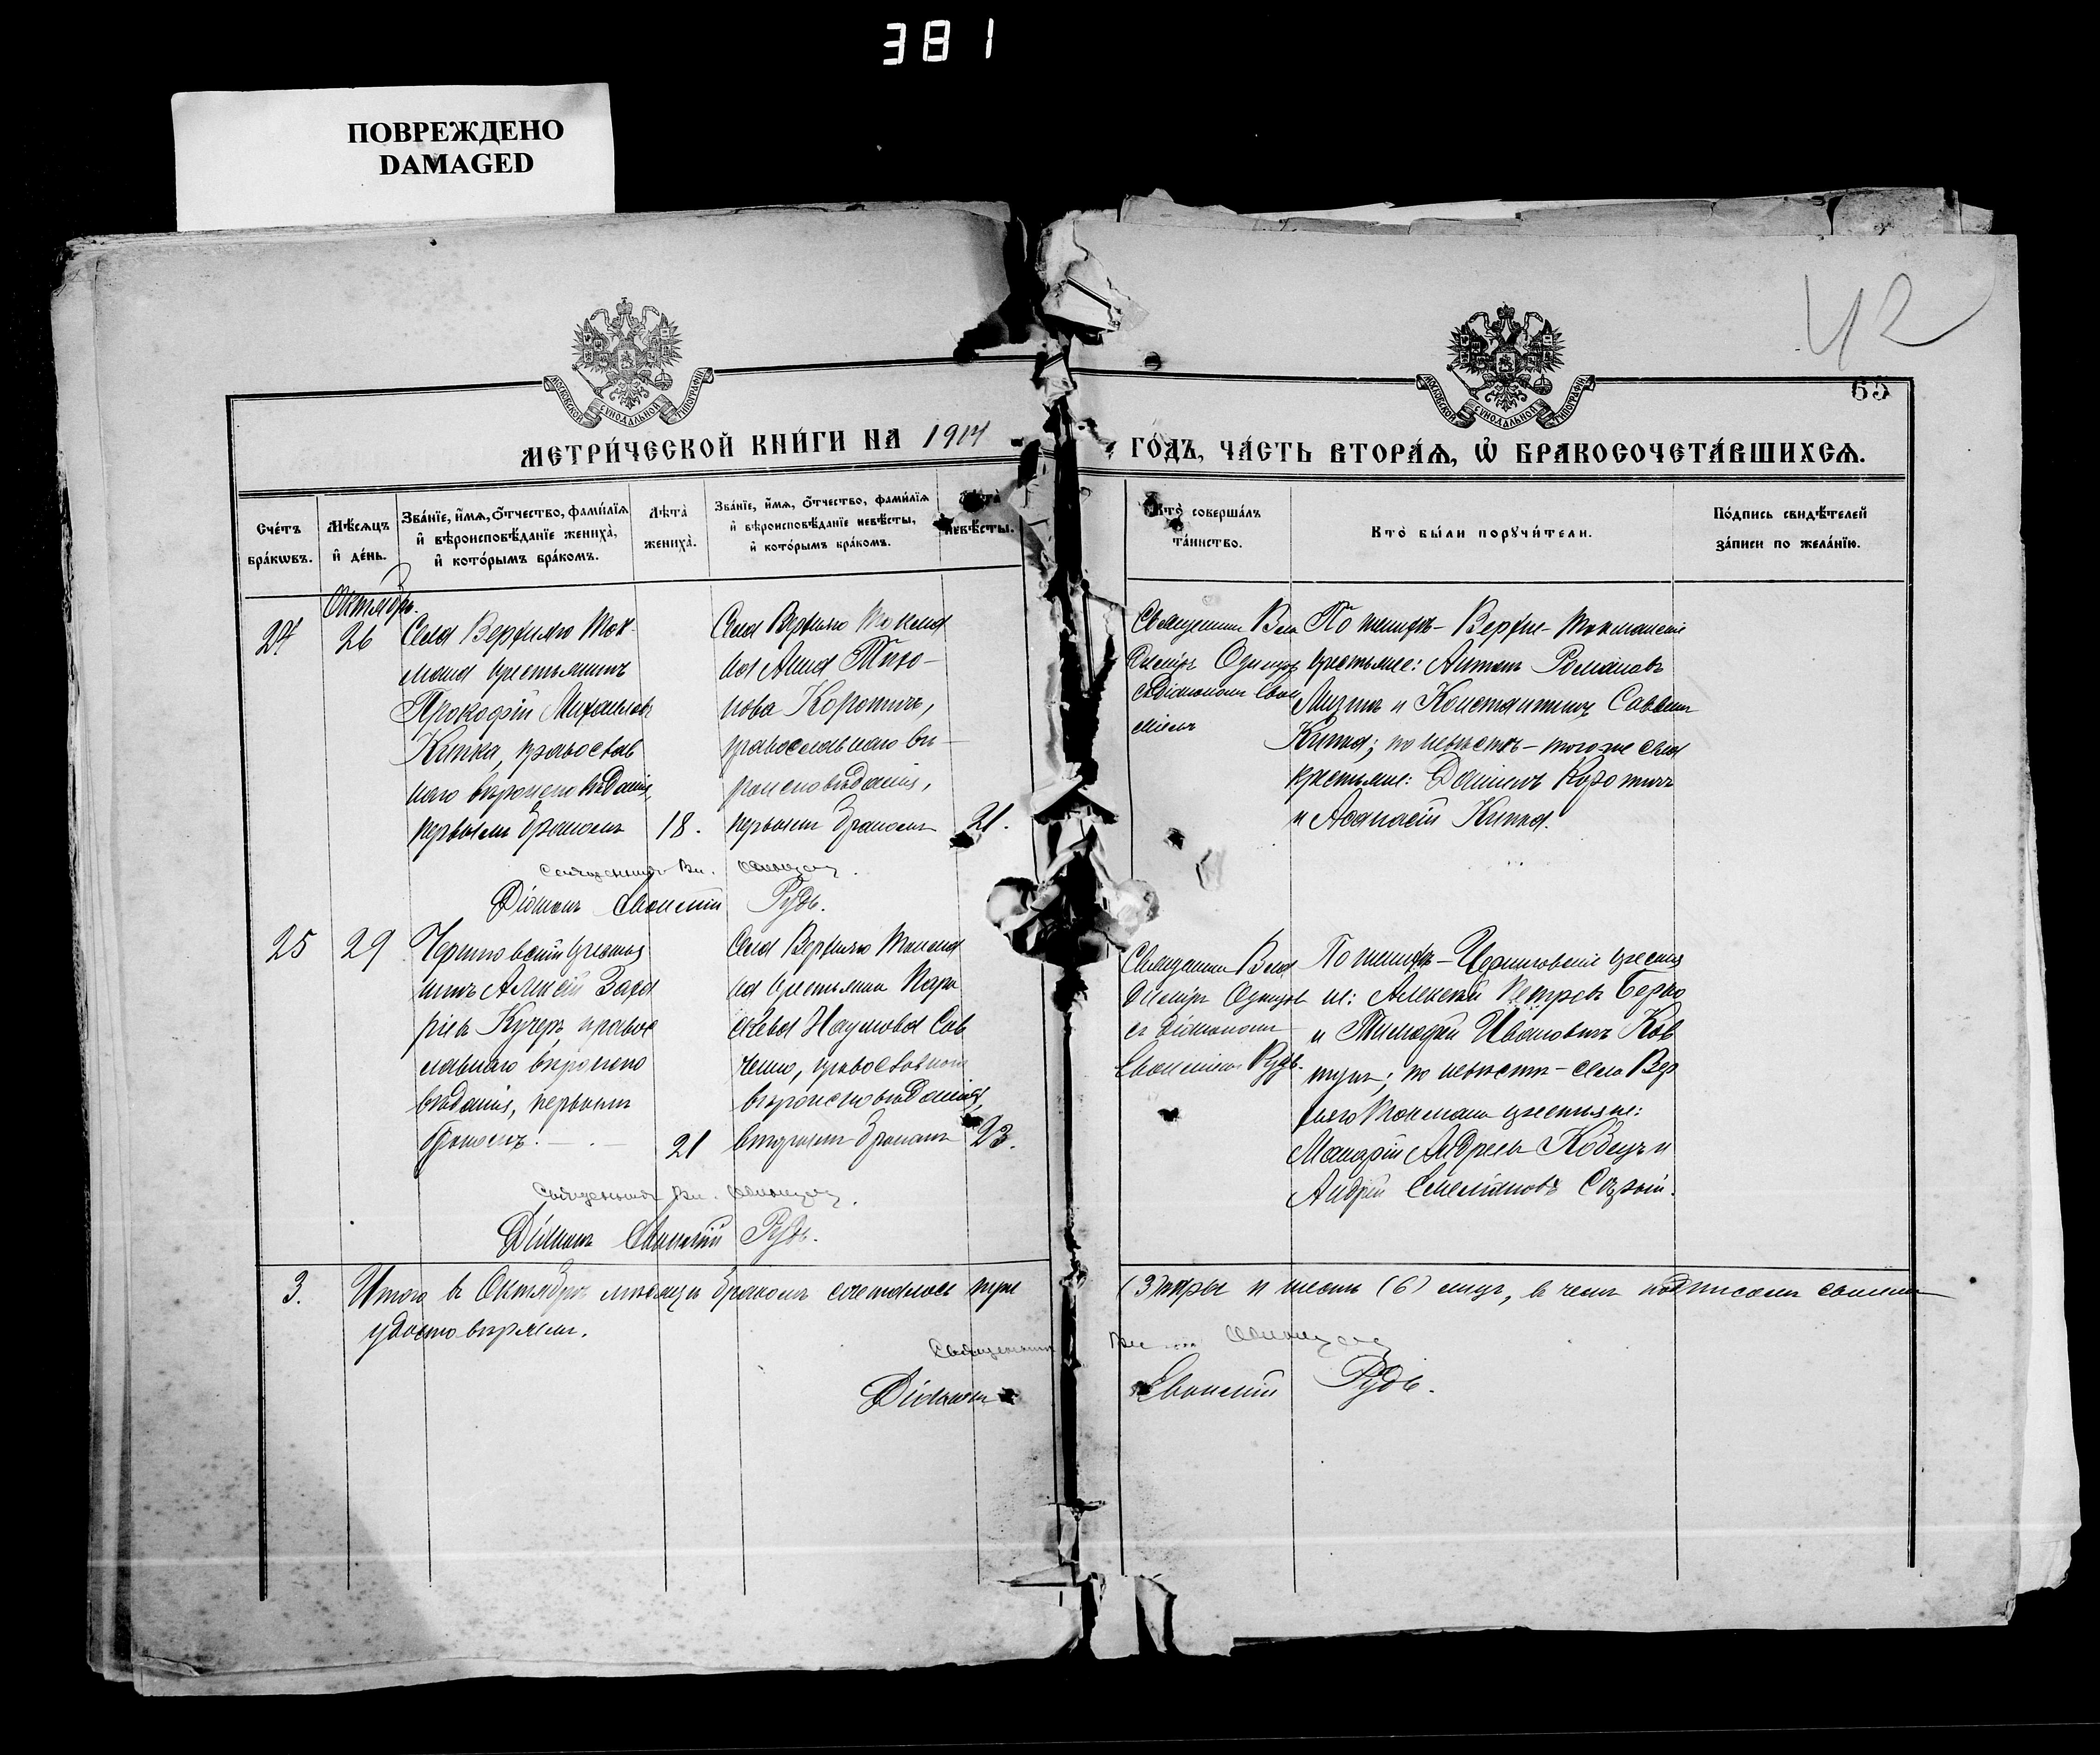 381
ПОВРЕЖДЕНО
DAMAGED
42
65
МОСКОВСКОЙ СѴНОДАЛЬНОЙ ТИПОГРАФІИ
МОСКОВСКОЙ СѴНОДАЛЬНОЙ ТИПОГРАФІИ
МЕТРИ́ЧЕСКОЙ КНИ́ГИ НА 1914
ГО́ДЪ, ЧА́СТЬ ВТОРА́Ѧ, Ѡ҆ БРАКОСОЧЕТА́ВШИХСѦ.
Сче́тъ
бра́кѡвъ.
Мѣ́сѧцъ
и҆ де́нь.
Зва́нїе, и҆́мѧ, ѻ҆́тчество, фами́лїѧ
и҆ вѣроисповѣ́данїе жениха̀,
и҆ кото́рымъ бра́комъ.
Лѣ́та
жениха̀.
Зва́нїе, и҆́мѧ, ѻ҆́тчество, фами́лїѧ
и҆ вѣроисповѣ́данїе невѣ́сты,
и҆ кото́рымъ бра́комъ.
Лѣ́та
невѣ́сты.
Кто̀ соверша́лъ
та́инство.
Кто̀ бы́ли порꙋчи́тели.
По́дпись свидѣ́телей
за́писи по жела́нїю.
Октябрь.
24 26
Села Верхняго Ток-
мака крестьянинъ
Прокофій Михаиловъ
Кипка, православ
наго вѣроисповѣданія,
первымъ бракомъ
18.
Села Верхняго Токма
ка Анна Тихо-
нова Коротичъ,
православнаго вѣ-
роисповѣданія,
первымъ бракомъ
21.
Священникъ Вла
диміръ Одинцовъ
съ діакономъ Евѳи
міемъ
По жениху- Верхне-Токмакскіе
крестьяне: Антонъ Романовъ
и Константинъ Саввинъ
Кипка; по невѣстѣ- тогоже села
крестьяне: Даніилъ Коротичъ
и Аѳанасій Кипка.
Священникъ Вл. Одинцовъ.
Діаконъ Евѳимій Рудь.
25 29
Черниговскій крестья
нинъ Алексій Заха
ріевъ Кучеръ, правос
лавнаго вѣроиспо
вѣданія, первымъ
бракомъ.
21
Села Верхняго Токма
ка крестьянка Пара
скева Наумова Сав
ченко, православнаго
вѣроисповѣданія,
вторымъ бракомъ
23.
Священникъ Вла
диміръ Одинцовъ
съ діакономъ
Евѳиміемъ Рудь.
По жениху- Черниговскіе крестья
не: Алексѣй Петровъ
и Тимоѳей Ивановичъ Ков
тунъ; по невѣстѣ- села Вер
хняго Токмака крестьяне:
Макарій Андреевъ Кобецъ и
Андрей Емеліановъ
Священникъ Вл. Одинцовъ.
Діаконъ Евѳимій Рудь.
3. Итого въ Октябрѣ мѣсяцѣ бракомъ сочеталось три
(3) пары и шесть (6) лицъ, въ чемъ подписомъ своимъ
удостовѣряемъ.
Священникъ Вл. Одинцовъ
Діаконъ Евѳимій Рудь.